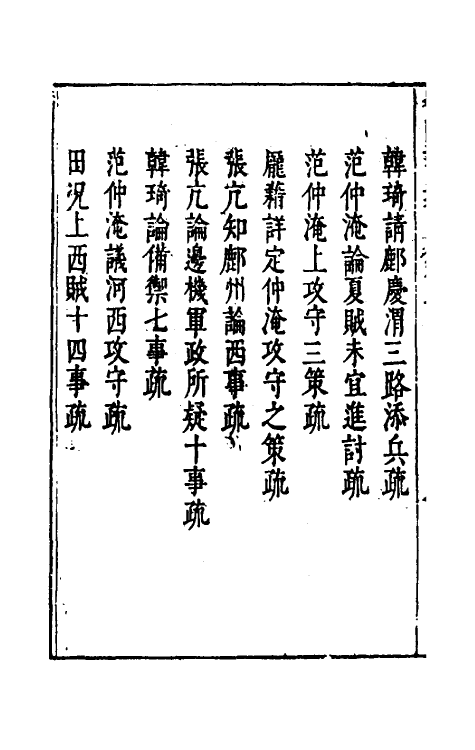 韓琦請鄜慶渭三路添兵疏
范仲淹論夏賊未宜進討疏
范仲淹上攻守三策疏
龐籍詳定仲淹攻守之策疏
張亢知鄜州論西事疏
張亢論邊機軍政所疑十事疏
韓琦論備禦七事疏
范仲淹議河西攻守疏
田况上西賊十四事疏